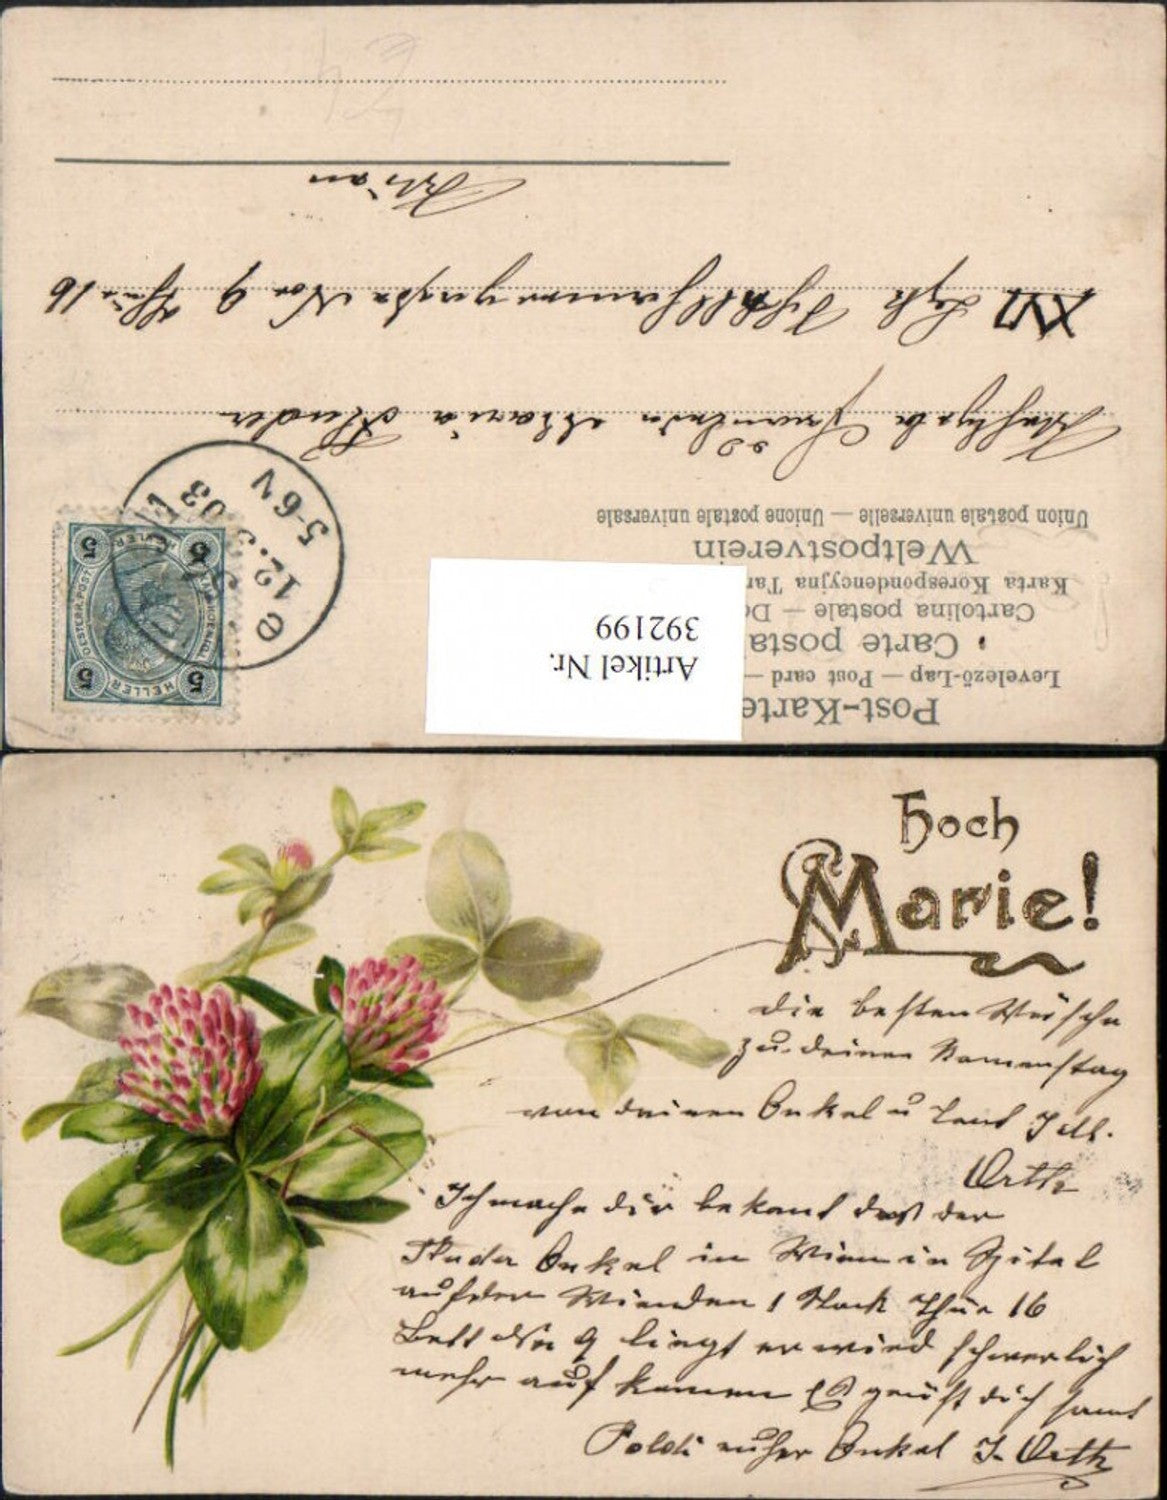 Post-Karte
Levelező-Lap — Post card —
Carte posta
Cartolina postale — Do
Karta Korespondencyjna Tar
Weltpostverein
Union postale universelle — Unione postale universale
Artikel Nr.
392199
5 HELLER 5
OESTERR. POST
5 HELLER 5
WIEN
12.3.03
5-6N
Fräulein Maria Studer
XVI No 9 Thür 16
Wien
Hoch
Marie!
die besten Wünsche
zu deinem Namenstag
von deinen Onkel u Tant
Orth
Ich mache dir bekant das der
Studer Onkel in Wien in Spital
auf der Wienden 1 Stock Thür 16
Bett No 9 liegt er wird schwerlich
mehr auf kommen Es grüßt dich samt
Poldi euher Onkel J. Orth